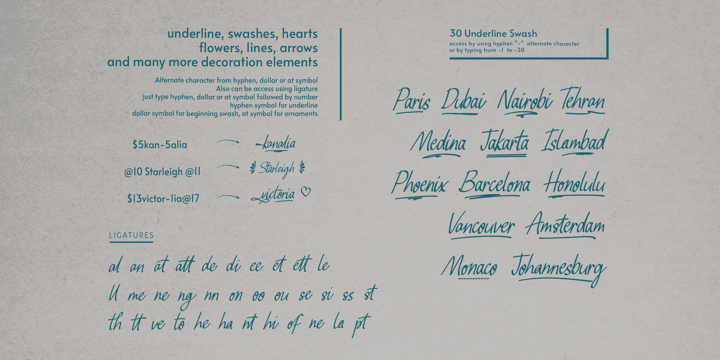 underline, swashes, hearts
flowers, lines, arrows
and many more decoration elements
Alternate character from hyphen, dollar or at symbol
Also can be access using ligature
just type hyphen, dollar or at symbol followed by number
hyphen symbol for underline
dollar symbol for beginning swash, at symbol for ornaments
$5kan-5alia kanalia
@10 Starleigh @11 Starleigh
$13victor-1ia@17 victoria
LIGATURES
al an at att de di ee et ett le
ll me ne ng nn on oo ou se si ss st
th tt ve to he ha nt hi of ne la pt
30 Underline Swash
access by using hyphen "-" alternate character
or by typing from -1 to -30
Paris Dubai Nairobi Tehran
Medina Jakarta Islambad
Phoenix Barcelona Honolulu
Vancouver Amsterdam
Monaco Johannesburg